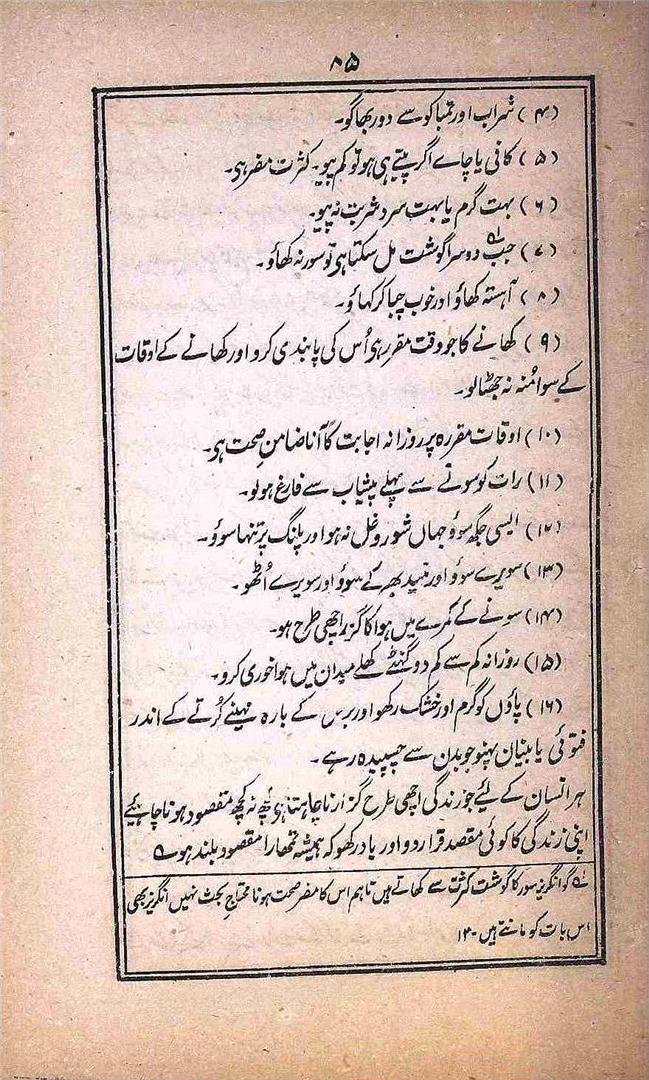 ۸۵
(۴) شراب اور تمباکو سے دور بھاگو۔
(۵) کافی یا چاے اگر پیتے ہی ہو تو کم پیو۔ کثرت مضر ہی۔
(۶) بہت گرم یا بہت سرد شربت نہ پیو۔
(۷) جب لہ دوسرا گوشت مل سکتا ہی تو سور نہ کھاؤ۔
(۸) آہستہ کھاؤ اور خوب چبا کر کھاؤ۔
(۹) کھانے کا جو وقت مقرر ہی اُس کی پابندی کرو اور کھانے کے اوقات
کے سوا مُنہ نہ جھٹالو۔
(۱۰) اوقات مقررہ پر روزانہ اجابت کا آنا ضامنِ صحت ہی۔
(۱۱) رات کو سونے سے پہلے پیشاب سے فارغ ہو لو۔
(۱۲) ایسی جگھ سوؤ جہاں شور و غل نہ ہو اور پلنگ پر تنہا سوؤ۔
(۱۳) سویرے سوؤ اور نیند بھر کے سوؤ اور سویرے اُٹھو۔
(۱۴) سونے کے کمرے میں ہوا کا گزر اچھی طرح ہو۔
(۱۵) روزانہ کم سے کم دو گھنٹے کھلے میدان میں ہوا خوری کرو۔
(۱۶) پاؤں کو گرم اور خشک رکھو اور برس کے بارہ مہینے کُرتے کے اندر
فتوئی یا بنیان پہنو جو بدن سے چسپیدہ رہے۔
ہر انسان کے لیئے جو زندگی اچھی طرح گزارنا چاہتا ہی کچھ نہ کچھ مقصود ہونا چاہیئے
اپنی زندگی کا کوئی مقصد قرار دو اور یاد رکھو کہ ہمیشہ تمھارا مقصود بلند ہو ؎
لہ گو انگریز سور کا گوشت کثرت سے کھاتے ہیں تاہم اس کا مضرِ صحت ہونا محتاجِ بحث نہیں انگریز بھی
اس بات کو مانتے ہیں ۔۱۲